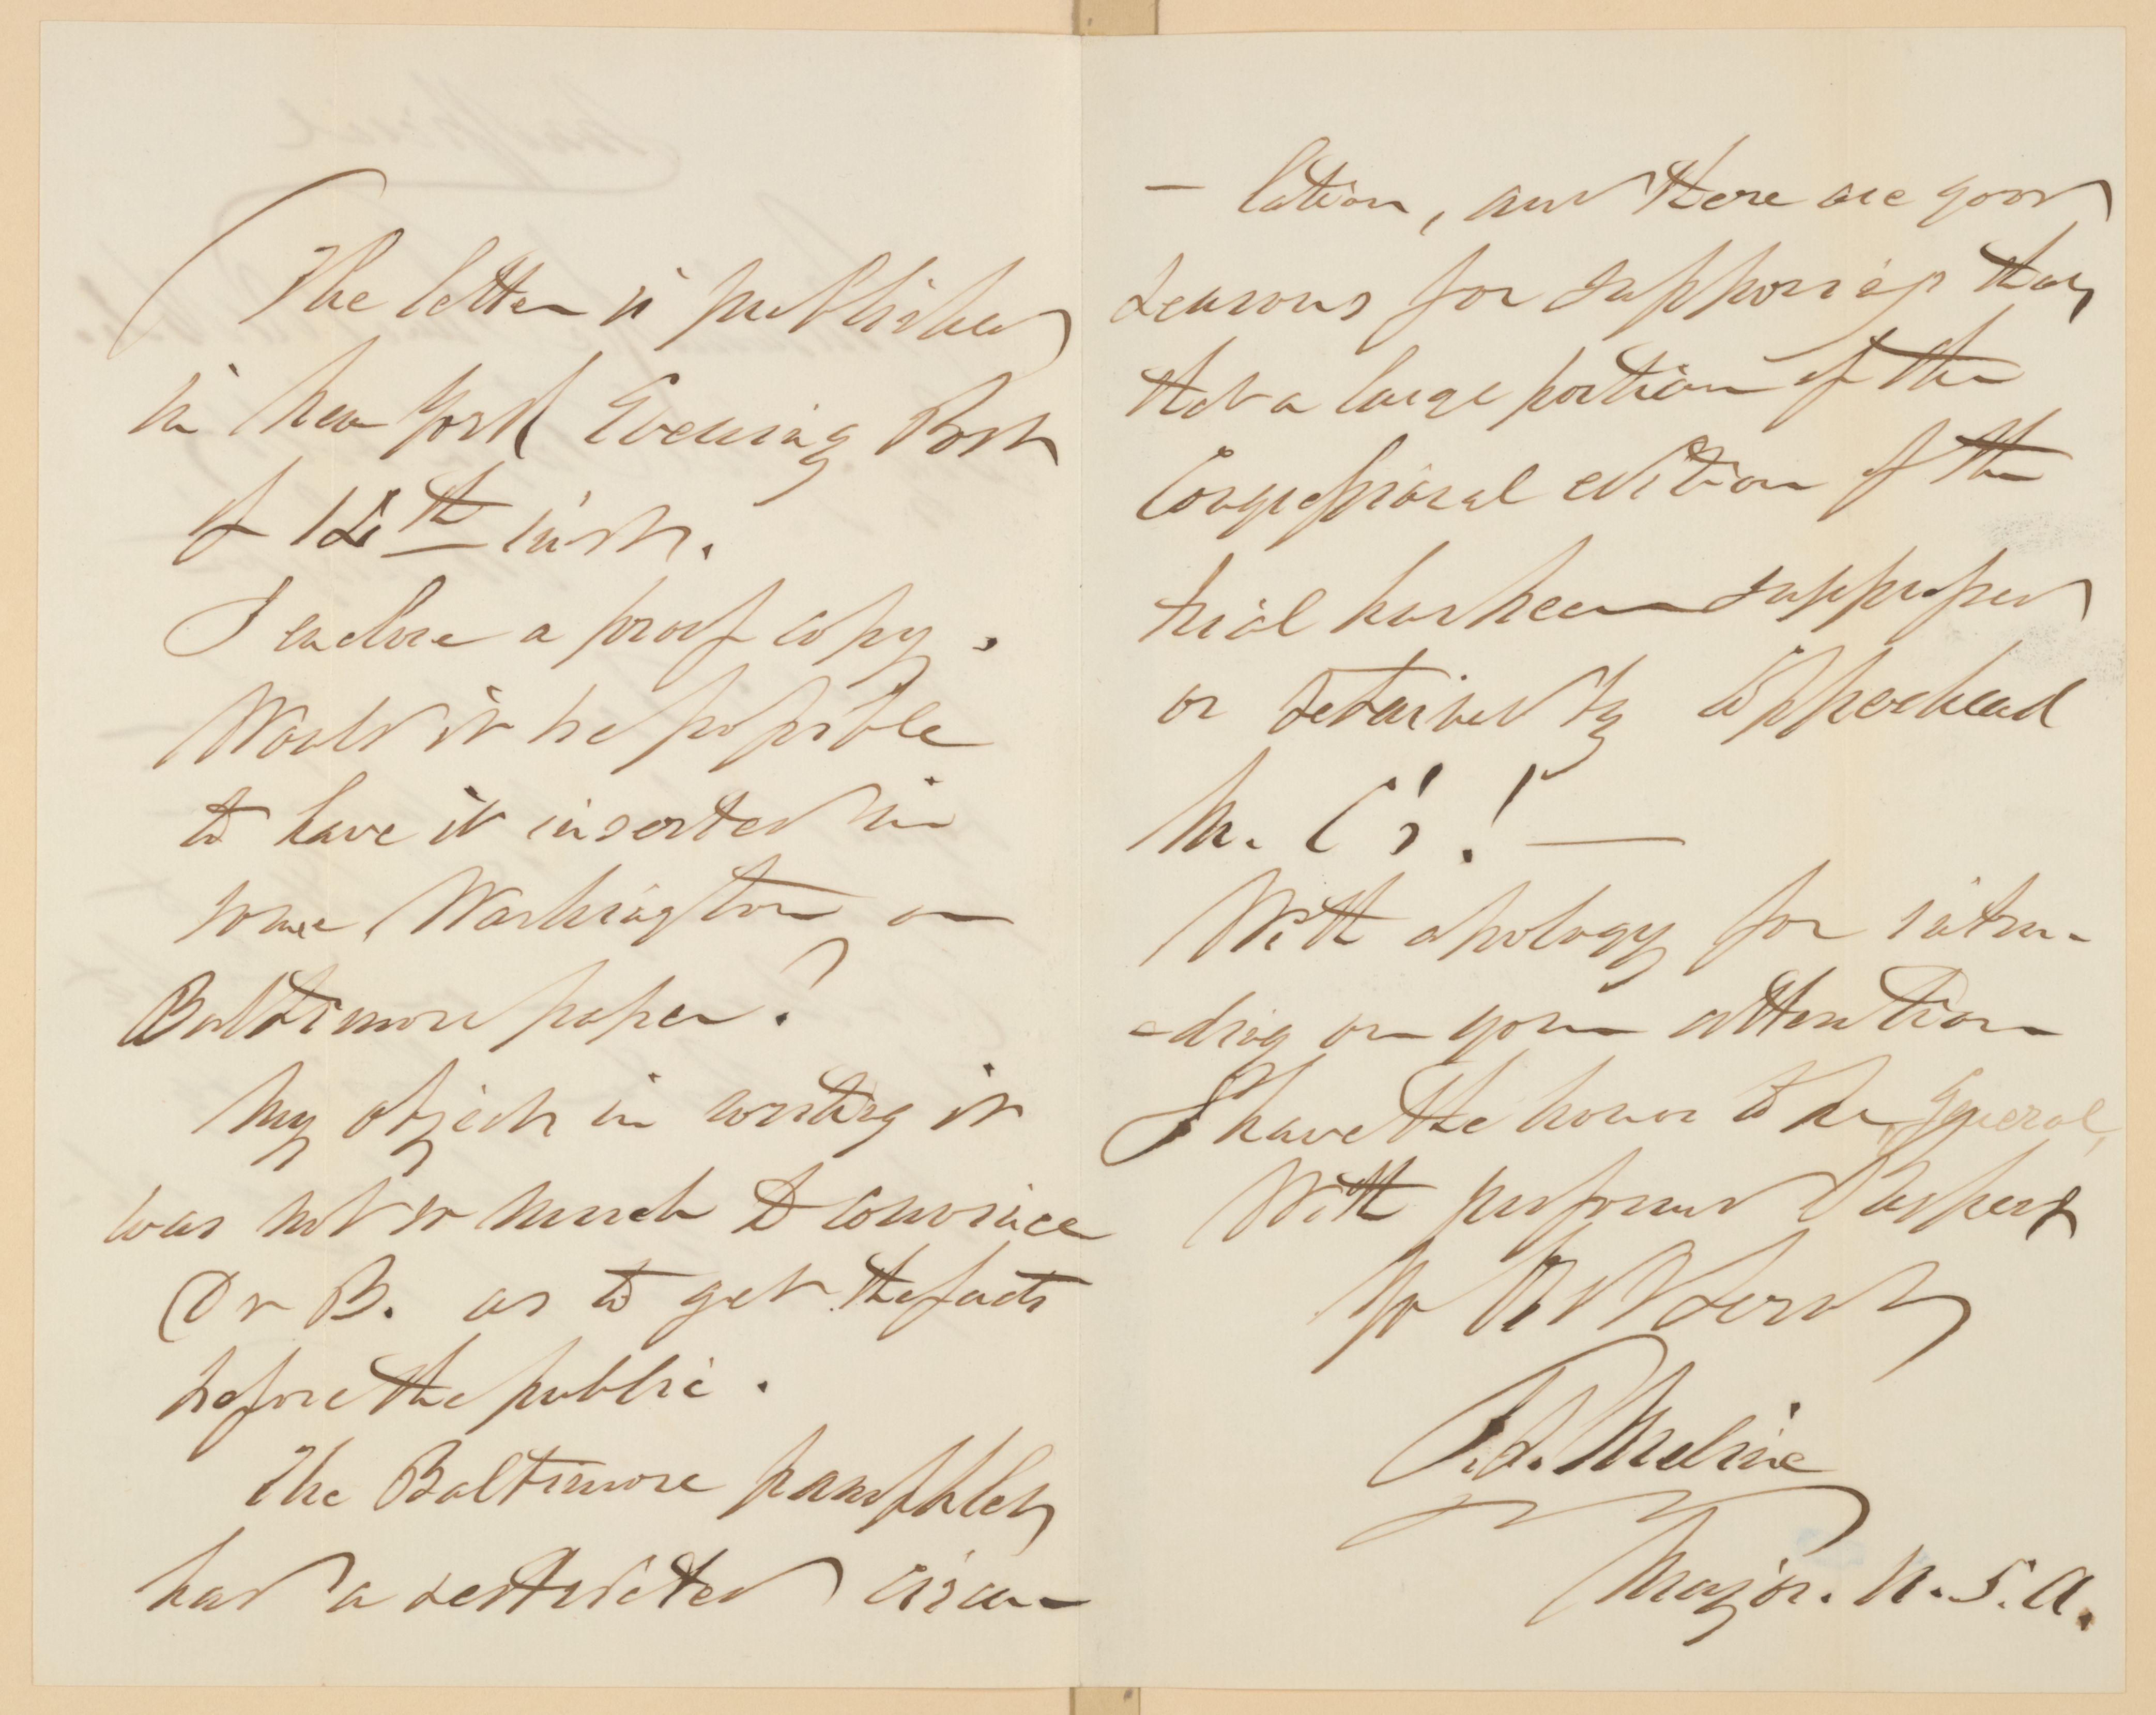 The letter is published
in New York Evening Post
of 12th inst.
I enclose a proof copy.
Would it be possible
to have it inserted in
some Washington or
Baltimore paper?
My object in writing it
was not so much to convince
Dr B. as to get the facts
before the public.
The Baltimore pamphlet
had a restricted circu-
- lation, and there are good
reasons for supposing that
that a large portion of the
Congressional edition of the
trial has been suppressed
or detained by Copperhead
M. C's! —
With apology for intru-
-ding on your attention
I have the honor to be, General,
With profound Respect
Yr Obt Servt
J. F. Meline
Major. U. S. A.